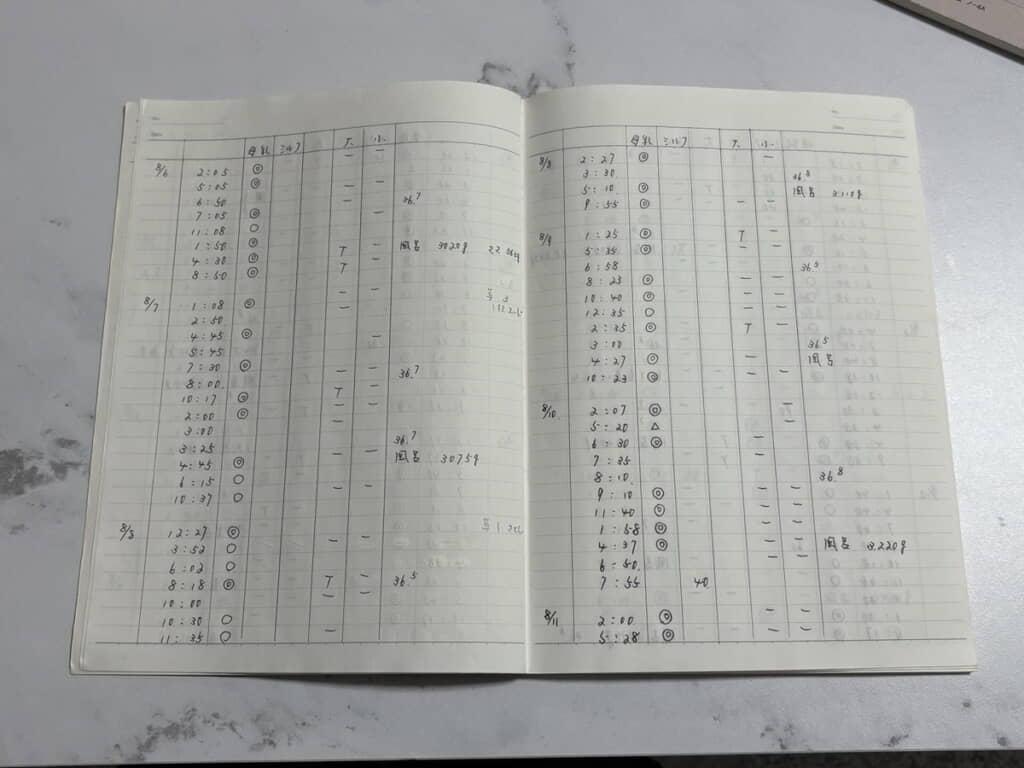 母乳 ミルク 大 小
8/6 2:05 ◎ —
5:05 ◎
6:50 — — 36.7
7:05 ◎ —
11:08 ○ —
1:50 ◎ —
4:30 ◎ T — 風呂 3020g
8:50 ◎ T
8/7 1:08 ◎ —
2:50
4:45 ◎ —
5:45
7:30 ◎ — — 36.7
8:00 T —
10:17 ◎ — —
2:00 ◎ —
3:00
3:25 36.7
4:45 ◎ — — 風呂 3075g
6:15 ○
10:37 ○ — —
8/8 12:27 ◎ — —
3:52 ○
6:02 ○
8:18 ◎ T — 36.5
10:00 —
10:30 ○
11:35 ○ —
母乳 ミルク 大 小
8/8 2:27 ◎ —
3:30 36.8
5:10 ◎ 風呂
9:55 ◎ — —
8/9 1:25 ◎ T —
5:35 ◎ — —
6:58 36.5
8:23 ◎ — —
10:40 ◎ — —
12:35 ○ — —
2:35 ◎ T —
3:00 36.5
4:27 ◎ — 風呂
10:23 ◎ — —
8/10 2:07 ◎ —
5:20 △
6:30 ◎ —
7:35 —
8:10 36.8
9:10 ◎ — —
11:40 ◎ — —
1:58 ◎ — —
4:37 ◎ — — 風呂 3,220g
6:50 — —
7:55 40
8/11 2:00 ◎ — —
5:28 ◎ — —